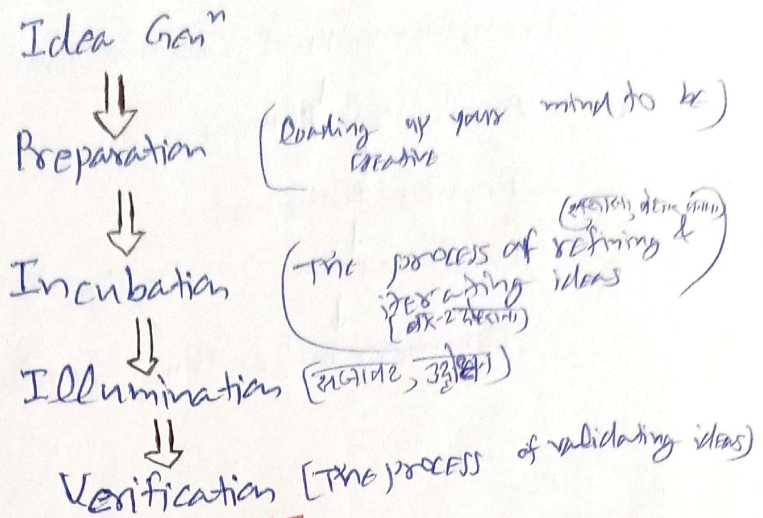 Idea Genⁿ
Preparation (loading up your mind to be)
creative
(सुधारना, बेहतर बनाना)
Incubation (The process of refining &
iterating ideas
(बार-2 दोहराना)
Illumination (सजावट,
Verification [The process of validating ideas)